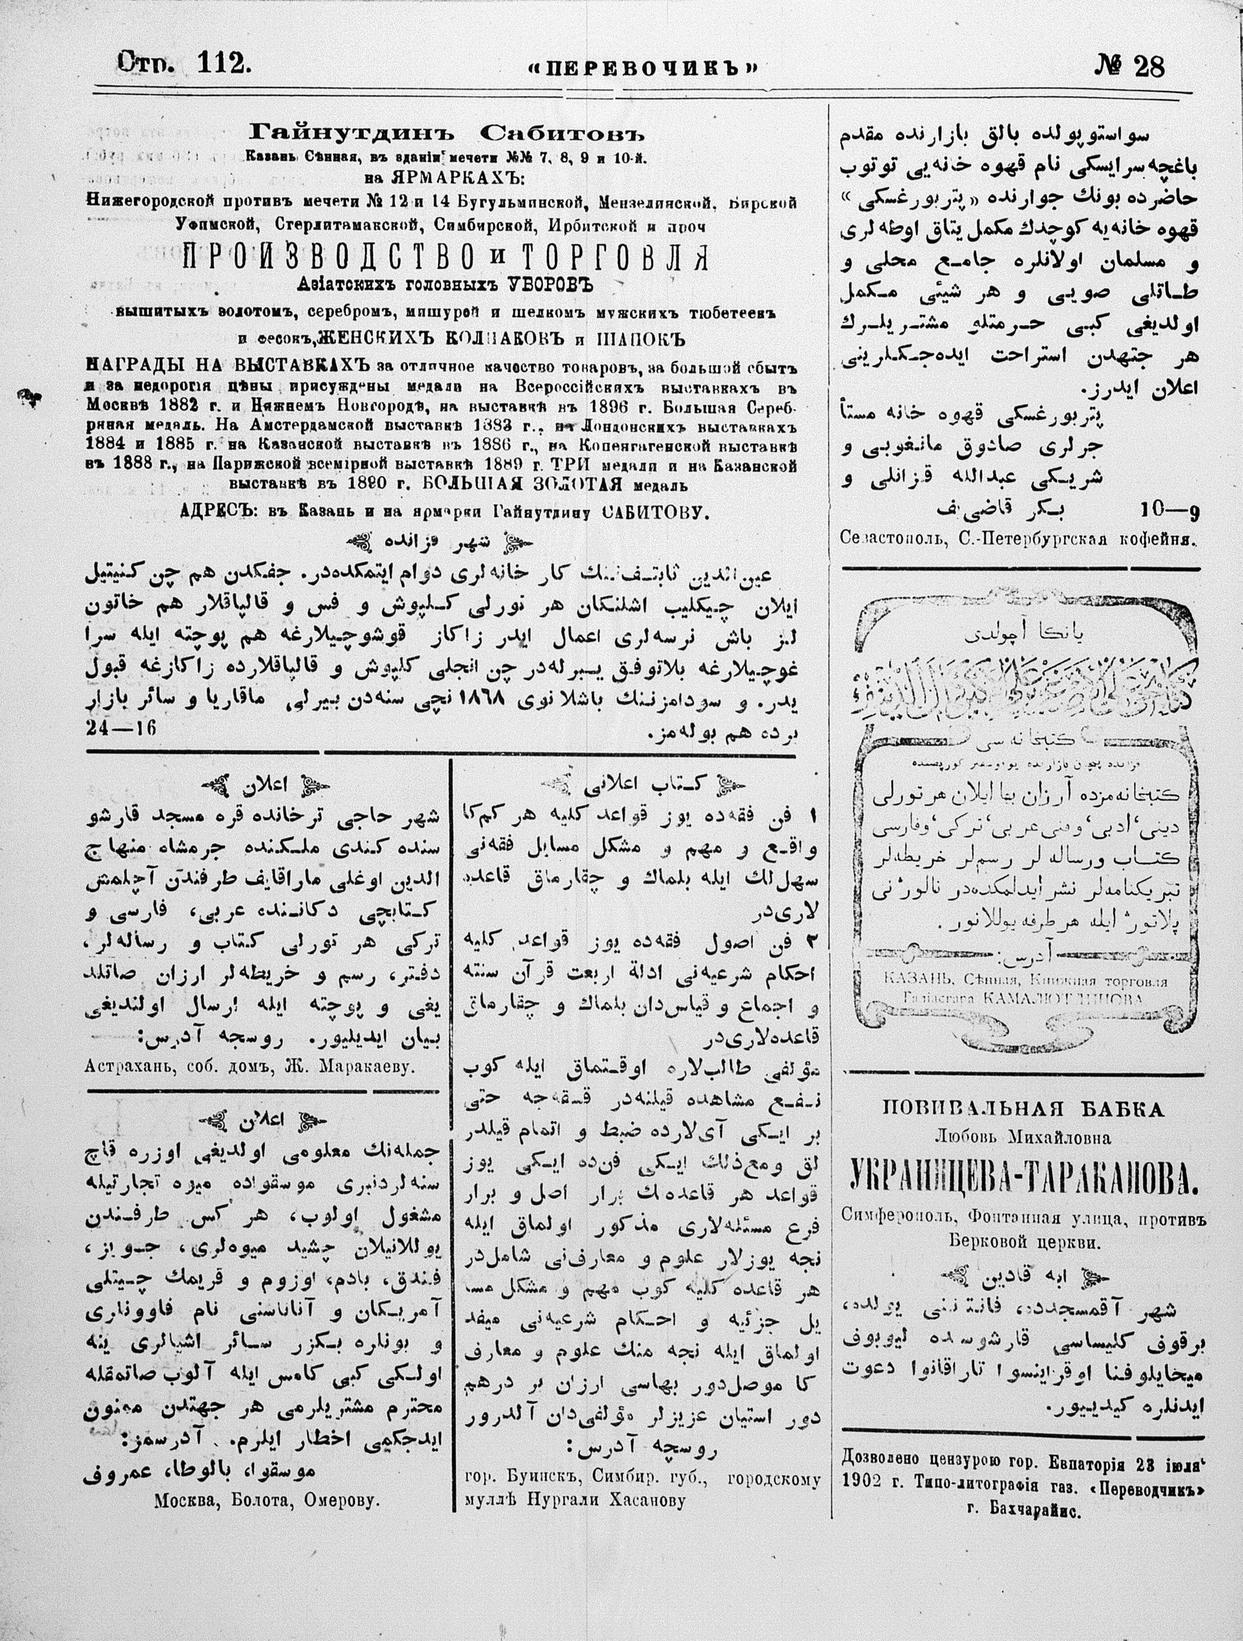 Стр. 112.
«ПЕРЕВОЧИКЪ»
№ 28
Гайнутдинъ Сабитовъ
Казань Сѣнная, въ зданіи мечети №№ 7, 8, 9 и 10-й.
на ЯРМАРКАХЪ:
Нижегородской противъ мечети № 12 и 14 Бугульминской, Мензелинской, Бирской
Уфимской, Стерлитамакской, Симбирской, Ирбитской и проч
ПРОИЗВОДСТВО и ТОРГОВЛЯ
Азіатскихъ головныхъ УБОРОВЪ
вышитыхъ золотомъ, серебромъ, мишурой и шелкомъ мужскихъ тюбетеекъ
и фесокъ, ЖЕНСКИХЪ КОЛПАКОВЪ и ШАПОКЪ
НАГРАДЫ НА ВЫСТАВКАХЪ за отличное качество товаровъ, за большой сбытъ
и за недорогія цѣны присуждены медали на Всероссійскихъ выставкахъ въ
Москвѣ 1882 г. и Нижнемъ Новгородѣ, на выставкѣ въ 1896 г. Большая Сереб-
ряная медаль. На Амстердамской выставкѣ 1883 г., на Лондонскихъ выставкахъ
1884 и 1885 г. на Казанской выставкѣ въ 1886 г., на Копенгагенской выставкѣ
въ 1888 г., на Парижской всемірной выставкѣ 1889 г. ТРИ медали и на Казанской
выставкѣ въ 1890 г. БОЛЬШАЯ ЗОЛОТАЯ медаль
АДРЕСЪ: въ Казань и на ярмарки Гайнутдину САБИТОВУ.
شهر قزانده
عین‌الدین ثابتـف‌ننك كار خانه‌لری دوام ایتمكده‌در. جفكدن هم چن كنیتیل
ایلان چیكلیب اشلنكان هر تورلی كـلپوش و فس و قالپاقلار هم خاتون
لرز باش نرسه‌لری اعمال ایدر زاكاز قوشوچیلارغه هم پوچته ایله سرا
غوچیلارغه بلاتوفق یـبرله‌در چن انجلی كلپوش و قالپاقلارده زاكازغه قبول
یدر. و سودامزننك باشلانوی ١٨٦٨ نچی سنه‌دن بیرلی ماقاریا و سائر بازار
برده هم بوله‌مز.
24—16
اعلان
شهر حاجی ترخانده قره مسجد قارشو
سنده كندی ملـكـنده جرمشاه منهاج
الدین اوغلی ماراقایف طرفندن آچلمش
كتابچی دكانـنده عربی، فارسی و
تركی هر تورلی كتاب و رساله‌لر،
دفتر، رسم و خریطه‌لر ارزان صاتلد
یغی و پوچته ایله ارسال اولندیغی
بیان ایدیلیور. روسجه آدرس:
Астрахань, соб. домъ, Ж. Маракаеву.
اعلان
جمله‌نك معلومی اولدیغی اوزره قاچ
سنه‌لردنبری موسقواده میوه تجارتیله
مشغول اولوب، هر كس طرفـندن
یوللانیلان چشید میوه‌لری، جـویز،
فندق، بادم، اوزوم و قریمك چـیتلی
آمریـكان و آناناسنی نام قاووناری
و بونلره بـكزر سـائر اشیالری ینه
اولـكی كبی كامس ایله آلوب صاتمقله
محترم مشتریلرمی هر جهتدن ممنون
ایدجكمی اخطار ایلرم. آدرسمز:
موسقوا، بالوطا، عمروف
Москва, Болота, Омерову.
كـتاب اعلانی
١ فن فقه‌ده یوز قواعد كلیه هر كم‌كا
واقـع و مهم و مشكل مسایل فقه‌نی
سهل‌لك ایله بلماك و چقارماق قاعده
لاری‌در
٢ فن اصول فقه‌ده یوز قواعد كلیه
احكام شرعیه‌نی ادلهٔ اربعت قرآن سنته
و اجماع و قیاس‌دان بلماك و چقارماق
قاعده‌لاری‌در
مؤلفی طالب‌لاره اوقـتماق ایله كوب
نـفـع مشاهده قیلنه‌در قـسقه‌جه حتی
بر ایـكی آی‌لارده ضبط و اتمام قیلدر
لق ومع‌ذلك ایـكی فن‌ده ایـكی یوز
قواعد هر قاعده‌نك برار اصل و برار
فرع مسئله‌لاری مذكور اولماق ایله
نجه یوزلار علوم و معارف‌نی شامل‌در
هر قاعده كلیه كوب مهم و مشكل مسا
یل جزئیه و احـكام شرعیه‌نی میفد
اولماق ایله نجه منك علوم و معارف
كا موصل‌دور بهاسی ارزان بر درهم
دور استیان عزیزلر مؤلفی‌دان آلدرور
روسچه آدرس:
гор. Буинскъ, Симбир. губ., городскому
муллѣ Нургали Хасанову
سواستوپولده بالق بازارنده مقدم
باغچه‌سرایسكی نام قهوه خانه‌یی توتوب
حاضرده بونك جوارنده «پتربورغسكی»
قهوه خانه‌یه كوچدك مكمل یتاق اوطه‌لری
و مسلمان اولانلره جامـع محلی و
طـاتلی صویـی و هر شیئی مـكمل
اولدیغی كبـی حـرمتلو مشتریلـرك
هر جتهدن استراحت ایده‌جـكلـرینی
اعلان ایدرز.
پتربورغسكی قهوه خانه مستأ
جرلری صادوق مانغوبـی و
شریـكی عبدالله قـزانلی و
بـكر قاضی‌یف
10—9
Севастополь, С.-Петербургская кофейня.
یانكا آچولدی
كتبخانه سی
كتبخانه‌مزده آرزان بها ایلان هرتورلی
دینی، ادبی، وفنی عربی، تركی، وفارسی
كتاب ورساله لر رسم‌لر خریطه‌لر
تبریكنامه‌لر نشر ایدلمكده‌در نالوژنی
پلاتوژ ایله هرطرفه یوللانور.
آدرس:
КАЗАНЬ, Сѣнная, Книжная торговля
Галіаскара КАМАЛЮТДИНОВА
ПОВИВАЛЬНАЯ БАБКА
Любовь Михайловна
УКРАИНЦЕВА-ТАРАКАНОВА.
Симферополь, Фонтанная улица, противъ
Берковой церкви.
ابه قادین
شهر آقمسجدده، فانتـننی یولده،
برقوف كلیساسی قارشوسنده لیوبوف
میخایلوفنا اوقراینسوا تاراقانوا دعوت
ایدنلره كیدییور.
Дозволено цензурою гор. Евпаторія 23 іюля
1902 г. Типо-литографія газ. «Переводчикъ»
г. Бахчарайис.